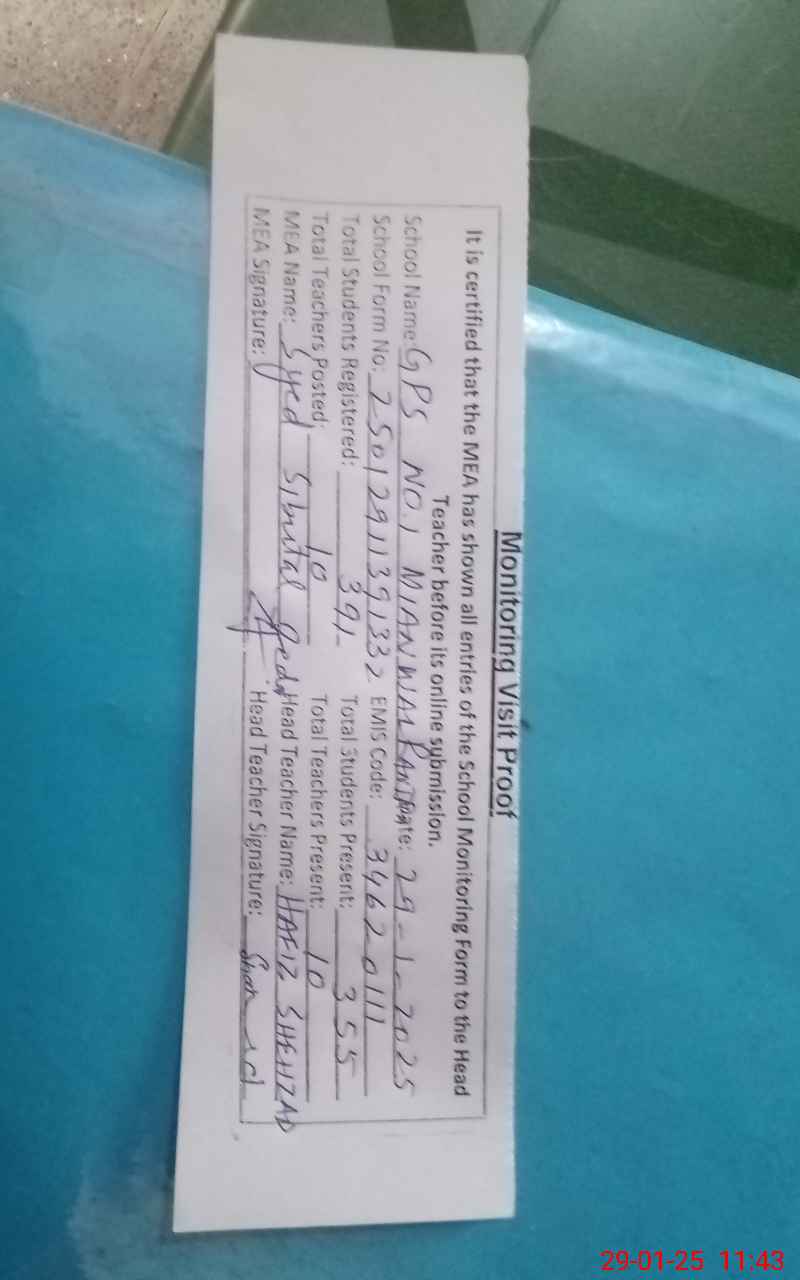 Monitoring Visit Proof
It is certified that the MEA has shown all entries of the School Monitoring Form to the Head
Teacher before its online submission.
School Name: GPS NO.1 MIANWALI Date: 29-1-2025
School Form No: EMIS Code: 34620111
Total Students Registered: 391 Total Students Present: 355
Total Teachers Posted: 10 Total Teachers Present: 10
MEA Name: Syed Head Teacher Name: HAFIZ SHEHZAD
MEA Signature: Head Teacher Signature:
29-01-25 11:43